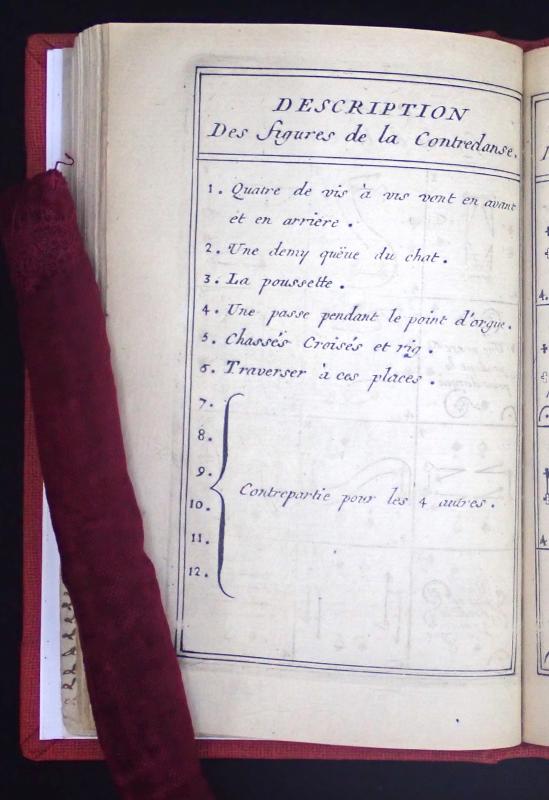 DESCRIPTION
Des figures de la Contredanse.
1. Quatre de vis à vis vont en avant
et en arriere.
2. Une demy quëue du chat.
3. La poussette.
4. Une passe pendant le point d'orgue.
5. Chassés Croisés et rig.
6. Traverser à ces places.
7.
8.
9.
Contrepartie pour les 4 autres.
10.
11.
12.